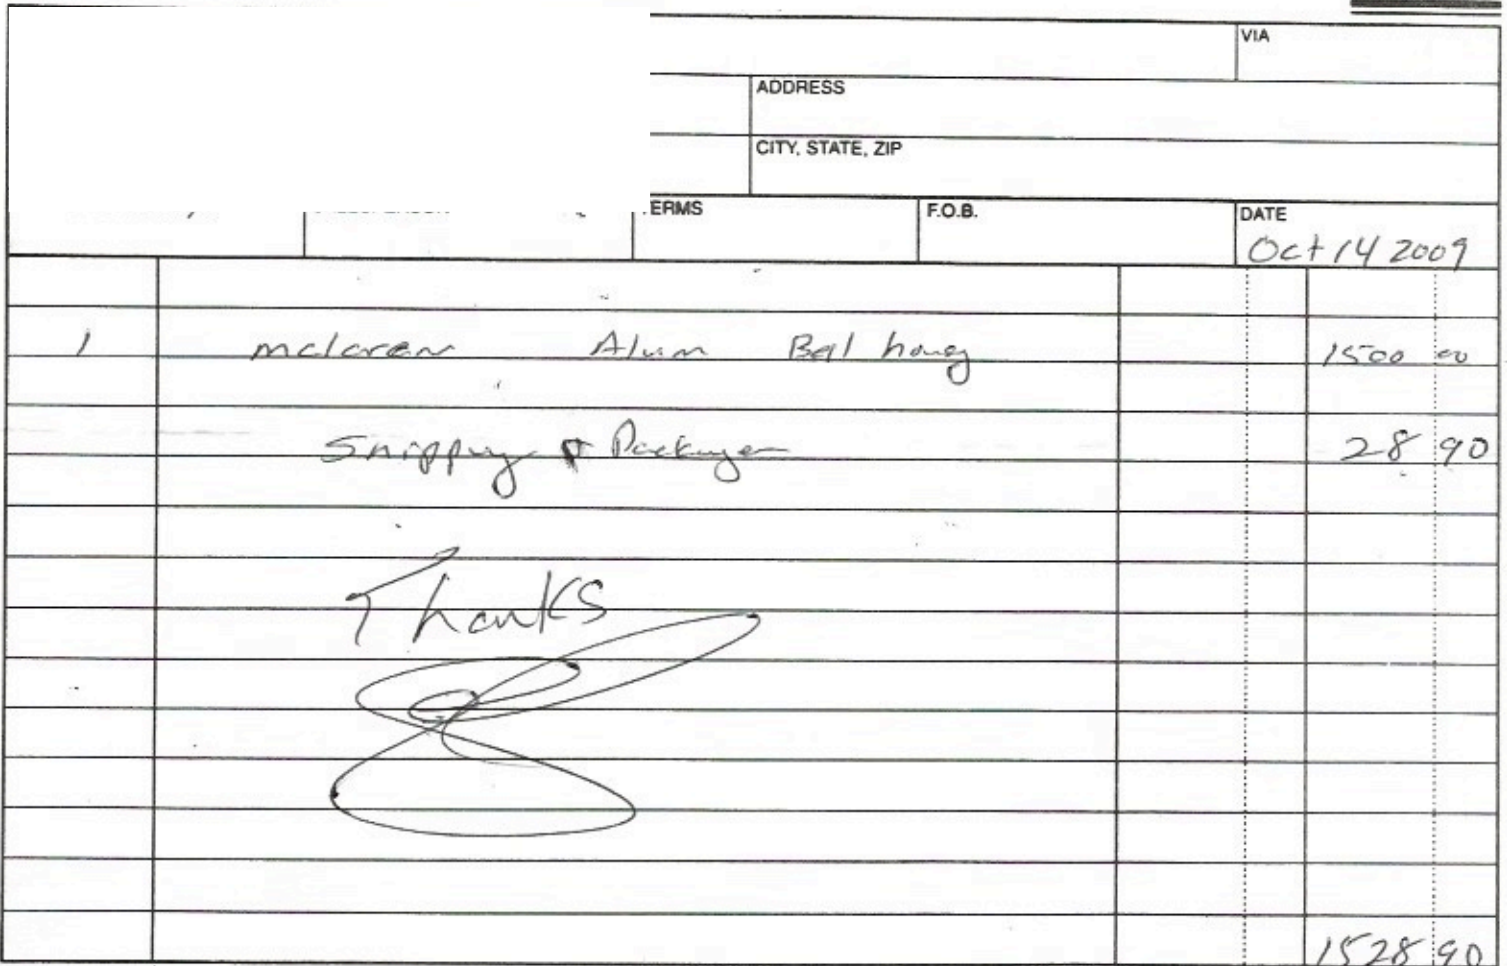 VIA
ADDRESS
CITY, STATE, ZIP
ERMS F.O.B. DATE
Oct 14 2009
1 mclaren Alum Bell 1500 00
Shipping & 28 90
Thanks
1528 90